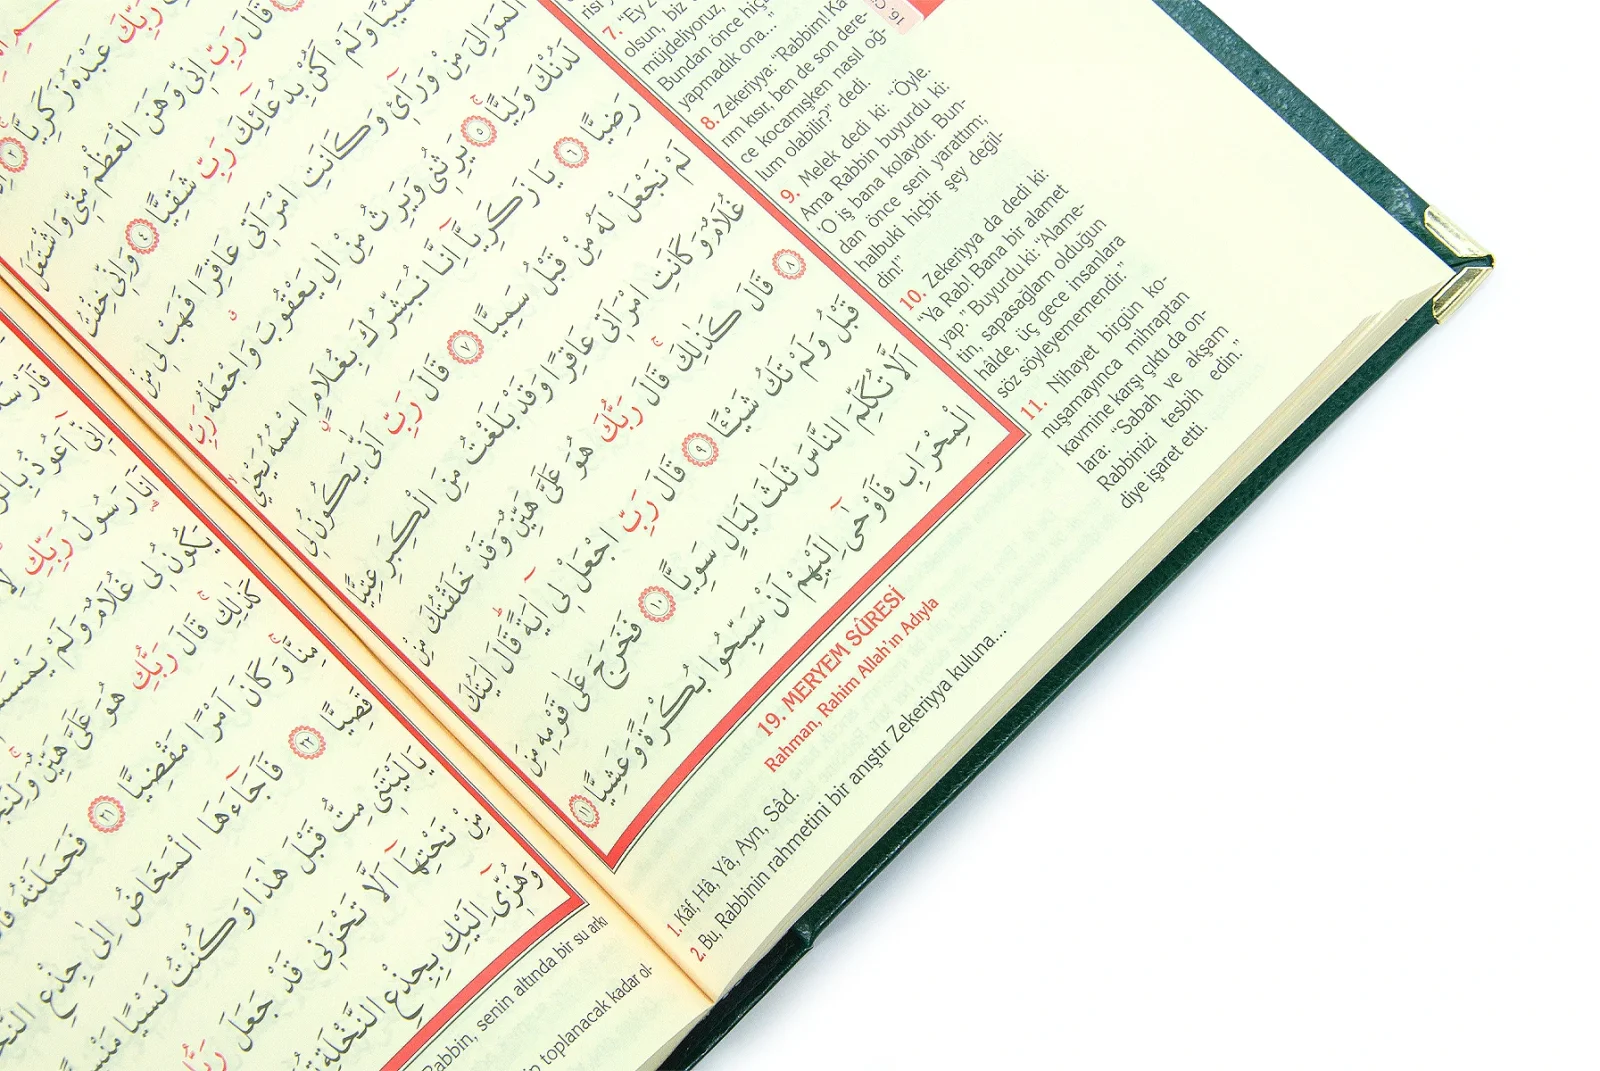 رَبِّكَ عَبْدَهُ زَكَرِيَّا ﴿٢﴾
قَالَ رَبِّ اِنّٖى وَهَنَ الْعَظْمُ مِنّٖى وَاشْتَعَلَ
وَلَمْ اَكُنْ بِدُعَائِكَ رَبِّ شَقِيًّا ﴿٤﴾ وَاِنّٖى خِفْتُ
الْمَوَالِىَ مِنْ وَرَائٖى وَكَانَتِ امْرَاَتٖى عَاقِرًا فَهَبْ لٖى مِنْ
لَدُنْكَ وَلِيًّا ﴿٥﴾ يَرِثُنٖى وَيَرِثُ مِنْ اٰلِ يَعْقُوبَ وَاجْعَلْهُ رَبِّ
رَضِيًّا ﴿٦﴾ يَا زَكَرِيَّا اِنَّا نُبَشِّرُكَ بِغُلَامٍ اسْمُهُ يَحْيٰى
لَمْ نَجْعَلْ لَهُ مِنْ قَبْلُ سَمِيًّا ﴿٧﴾ قَالَ رَبِّ اَنّٰى يَكُونُ لٖى
غُلَامٌ وَكَانَتِ امْرَاَتٖى عَاقِرًا وَقَدْ بَلَغْتُ مِنَ الْكِبَرِ عِتِيًّا
﴿٨﴾ قَالَ كَذٰلِكَ قَالَ رَبُّكَ هُوَ عَلَىَّ هَيِّنٌ وَقَدْ خَلَقْتُكَ مِنْ
قَبْلُ وَلَمْ تَكُ شَيْئًا ﴿٩﴾ قَالَ رَبِّ اجْعَلْ لٖى اٰيَةً قَالَ اٰيَتُكَ
اَلَّا تُكَلِّمَ النَّاسَ ثَلٰثَ لَيَالٍ سَوِيًّا ﴿١٠﴾ فَخَرَجَ عَلٰى قَوْمِهٖ مِنَ
الْمِحْرَابِ فَاَوْحٰى اِلَيْهِمْ اَنْ سَبِّحُوا بُكْرَةً وَعَشِيًّا ﴿١١﴾
7. "Ey Z
olsun, biz
müjdeliyoruz,
Bundan önce hiç
yapmadık ona..."
8. Zekeriyya: "Rabbim! Ka
rım kısır, ben de son dere-
ce kocamışken nasıl oğ-
lum olabilir?" dedi.
9. Melek dedi ki: "Öyle.
Ama Rabbin buyurdu ki:
'O iş bana kolaydır. Bun-
dan önce seni yarattım;
halbuki hiçbir şey değil-
din!"
10. Zekeriyya da dedi ki:
Ya Rab! Bana bir alamet
yap." Buyurdu ki: "Alame-
tin, sapasağlam olduğun
hâlde, üç gece insanlara
söz söyleyememendir."
11. Nihayet birgün ko-
nuşamayınca mihraptan
kavmine karşı çıktı da on-
lara: "Sabah ve akşam
Rabbinizi tesbih edin."
diye işaret etti.
19. MERYEM SÛRESİ
Rahman, Rahim Allah'ın Adıyla
1. Kâf, Hâ, Yâ, Ayn, Sâd.
2. Bu, Rabbinin rahmetini bir anıştır Zekeriyya kuluna...
اِنّٖى اَعُوذُ
اَنَا رَسُولُ رَبِّكِ
يَكُونُ لٖى غُلَامٌ وَلَمْ
كَذٰلِكِ قَالَ رَبُّكِ هُوَ عَلَىَّ هَيِّنٌ
مِنَّا وَكَانَ اَمْرًا مَقْضِيًّا ﴿٢١﴾ فَحَمَلَتْهُ
قَصِيًّا ﴿٢٢﴾ فَاَجَاءَهَا الْمَخَاضُ اِلٰى جِذْعِ
يَالَيْتَنٖى مِتُّ قَبْلَ هٰذَا وَكُنْتُ نَسْيًا
مِنْ تَحْتِهَا اَلَّا تَحْزَنٖى قَدْ جَعَلَ
وَهُزّٖى اِلَيْكِ بِجِذْعِ النَّخْلَةِ
Rabbin, senin altında bir su arkı
toplanacak kadar ol-